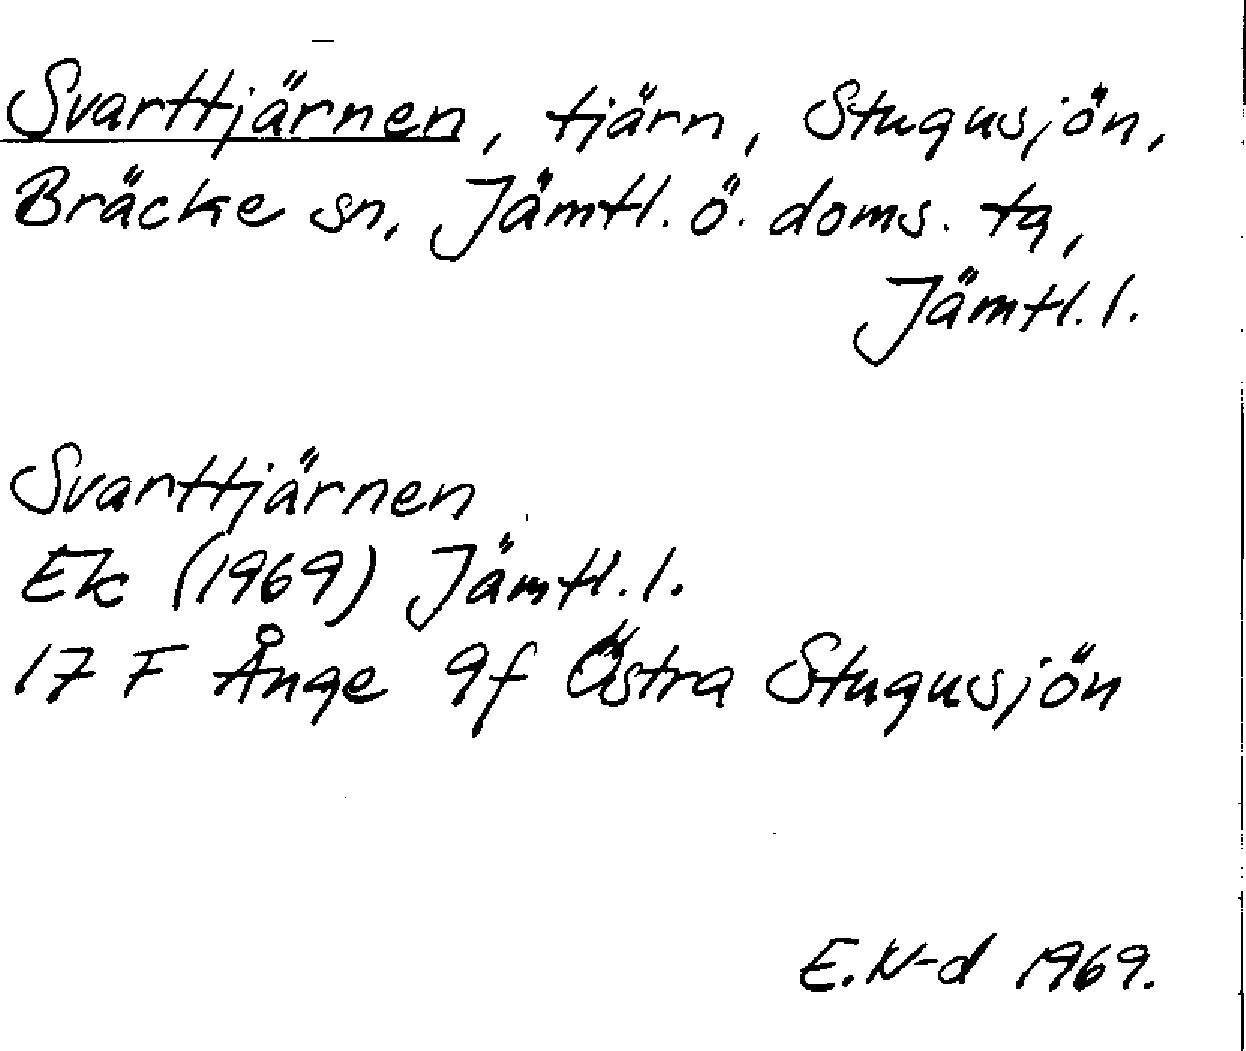 Svarttjärnen, tjärn, Stugusjön,
Bräcke sn, Jämtl. ö. doms. tg,
Jämtl. l.
Svarttjärnen
Ek (1969) Jämtl. l.
17 F Ånge 9f Östra Stugusjön
E. N-d 1969.